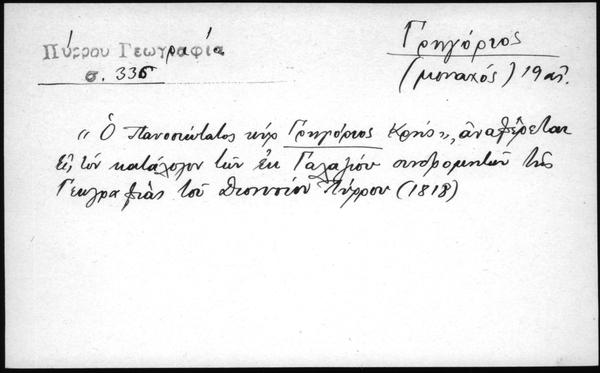 Πύρρου Γεωγραφία
σ. 335
Γρηγόριος
(μοναχός) 19 αἰ.
« Ὁ Πανοσιώτατος κὺρ Γρηγόριος Κρής», ἀναφέρεται
εἰς τὸν κατάλογον τῶν ἐκ Γαλαζίου συνδρομητῶν τῆς
Γεωγραφίας τοῦ Διονυσίου Πύρρου (1818)